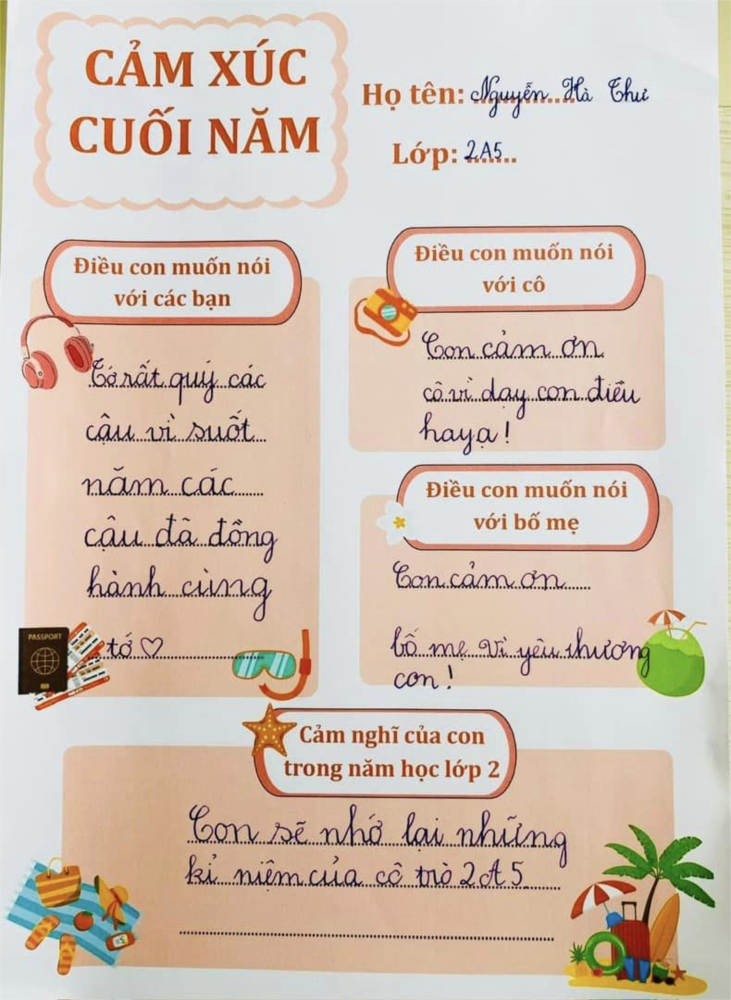 CẢM XÚC
CUỐI NĂM
Họ tên: Nguyễn Hà Thư
Lớp: 2A5
Điều con muốn nói
với các bạn
Tớ rất quý các
cậu vì suốt
năm các
cậu đã đồng
hành cùng
tớ ♡
PASSPORT
Điều con muốn nói
với cô
Con cảm ơn
cô vì dạy con điều
hay ạ!
Điều con muốn nói
với bố mẹ
Con cảm ơn
bố mẹ vì yêu thương
con!
Cảm nghĩ của con
trong năm học lớp 2
Con sẽ nhớ lại những
kỉ niệm của cô trò 2A5.